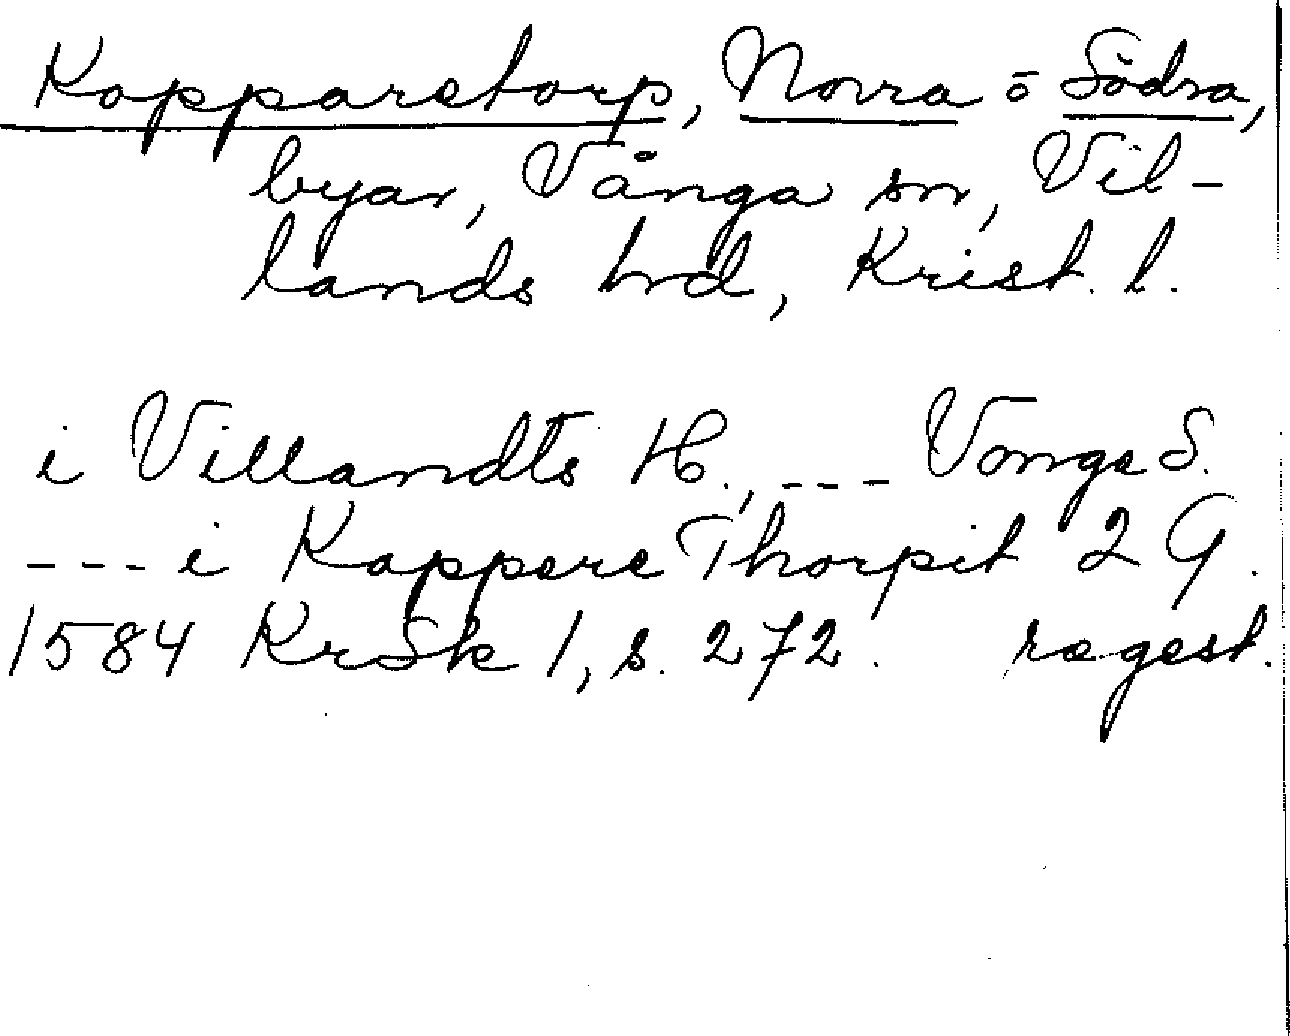 Kopparetorp, Norra o Södra,
byar, Vånga sn, Vil-
lands hd, Krist. l.
i Villandts H., --- Vonge S.
--- i Koppere Thorpit 2 G.
1584 KrSk 1, s. 272. regest.